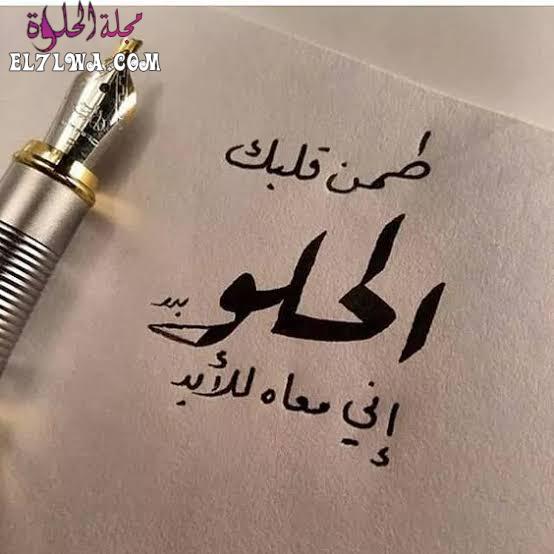 مجلة الحلوة
EL7LWA.COM
طمن قلبك
الحلو
إني معاه للأبد